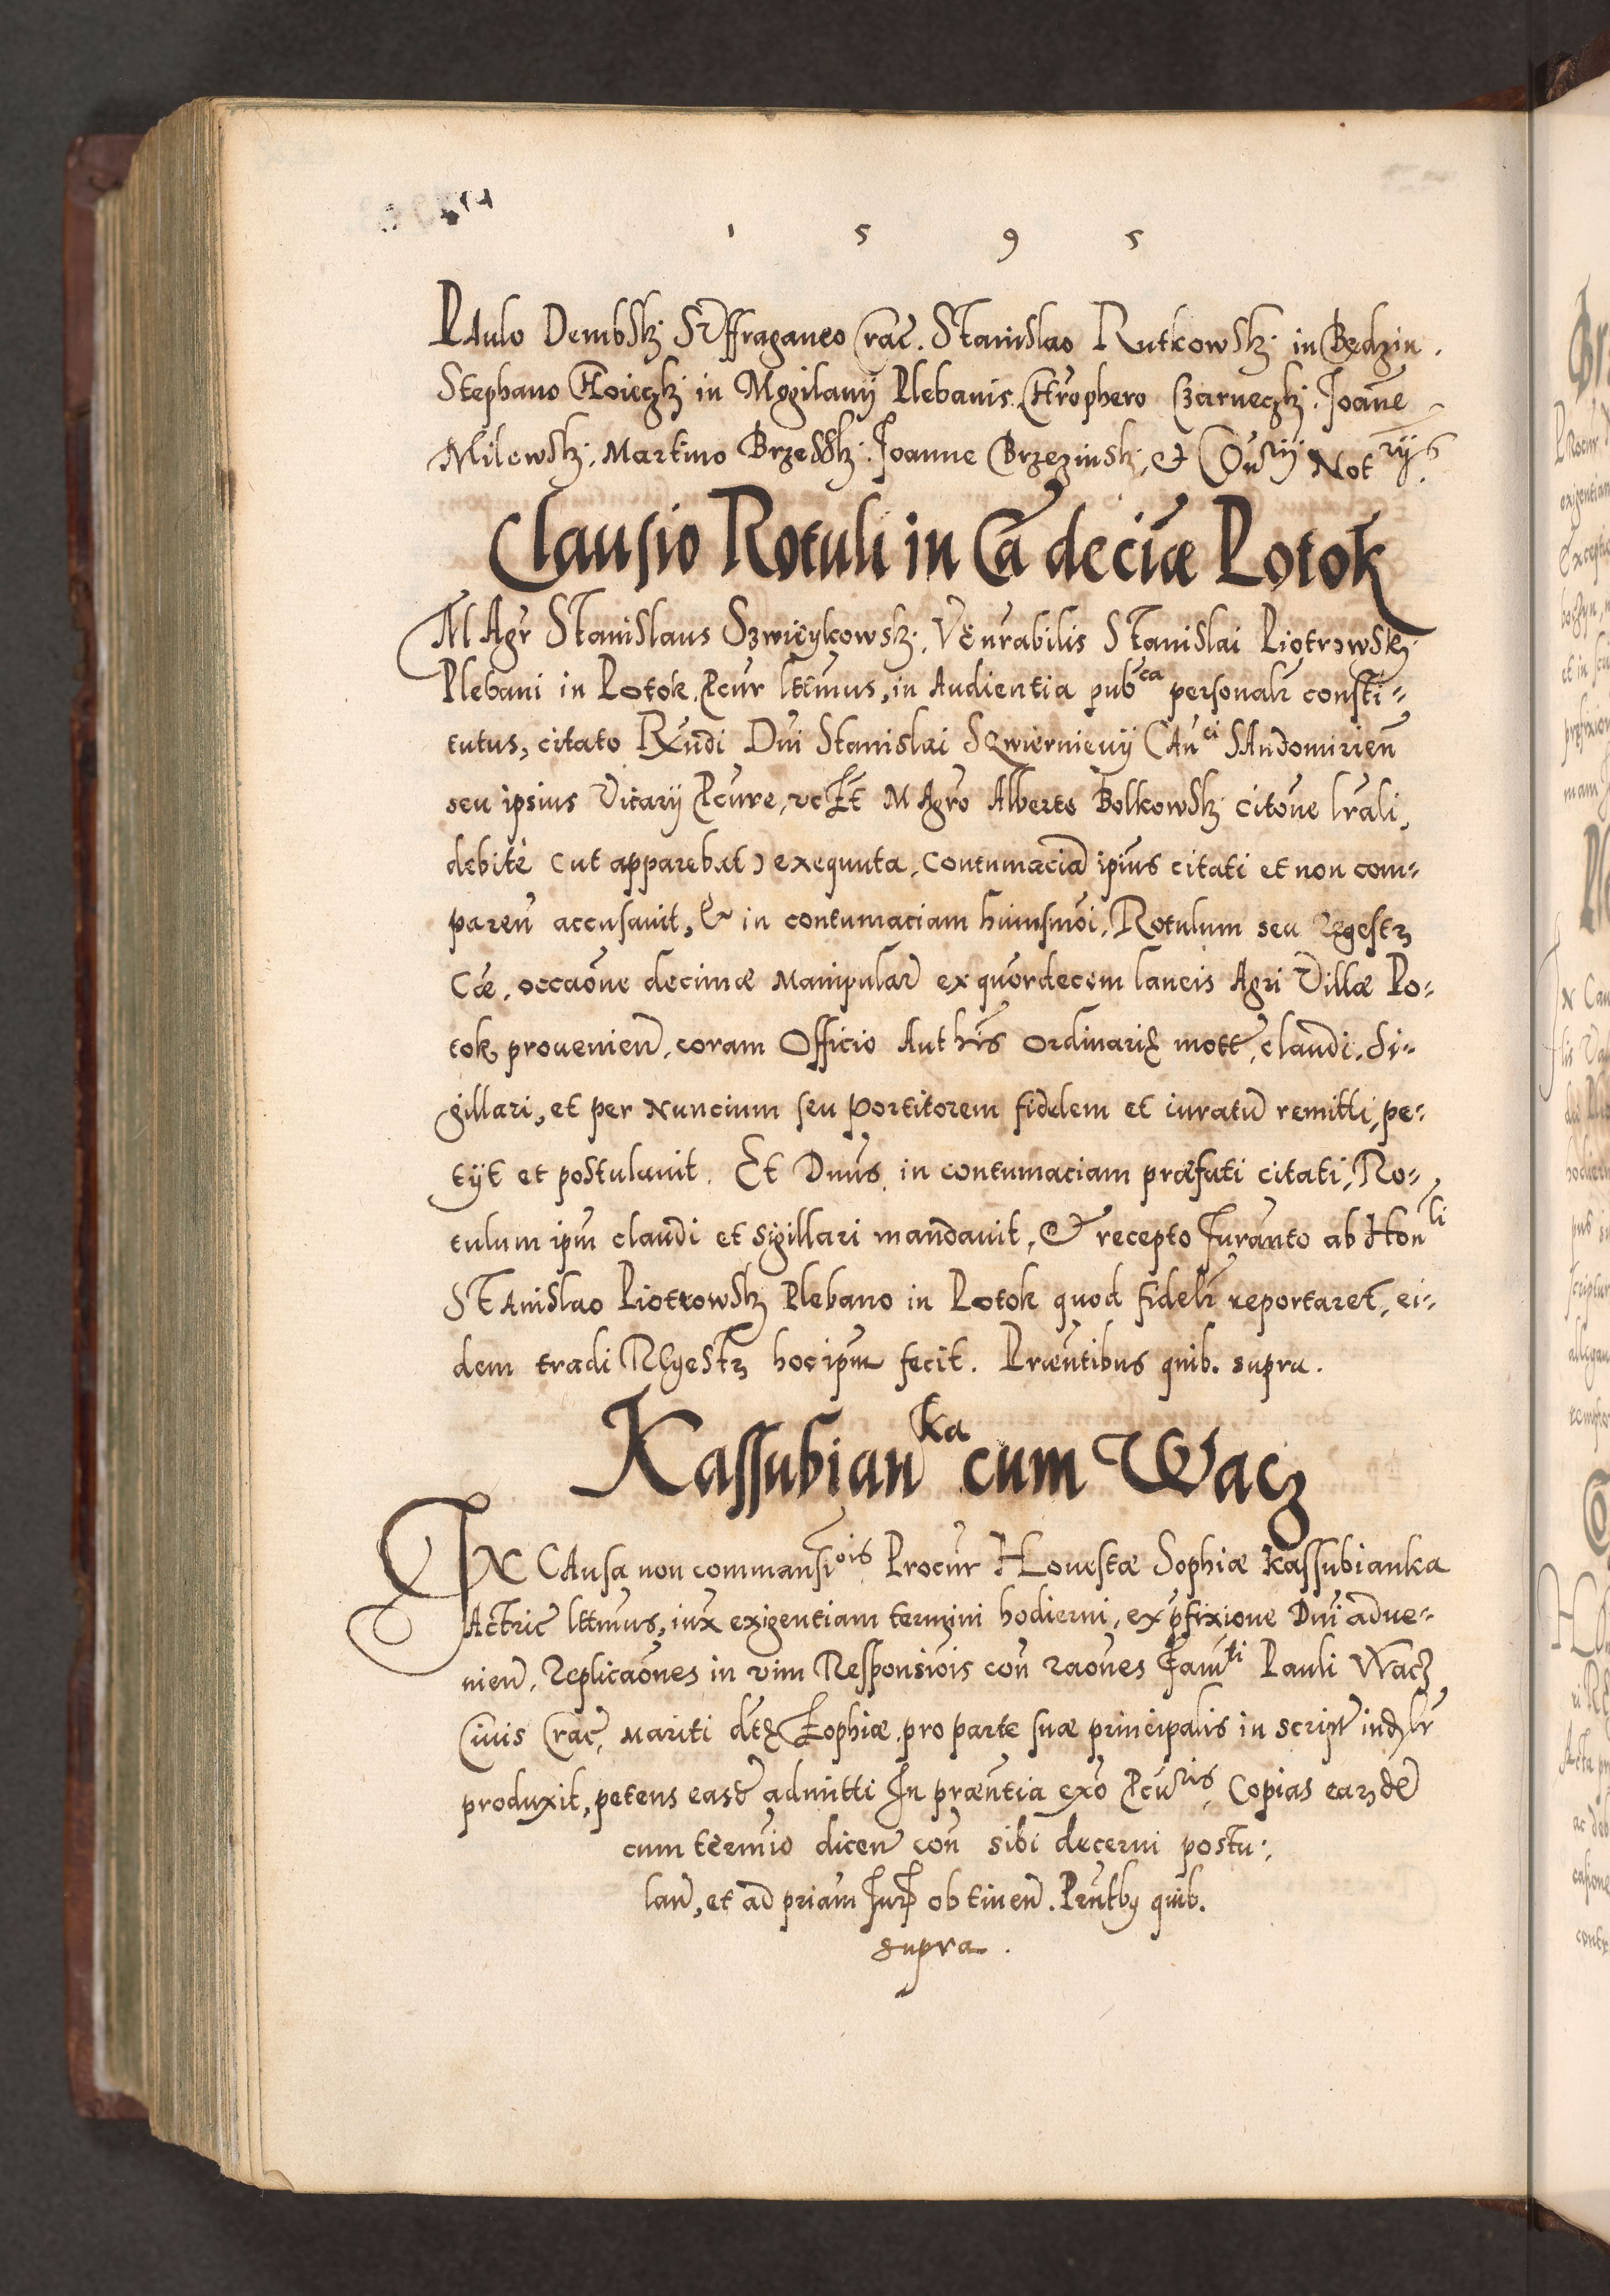 1 5 9 5
PAulo Dembskj Suffraganeo Crac̃. Stanislao Rutkowskj in Będzin.
Stephano Choieczkj in Mogilany Plebanis. Chr̃ophero Czarneczkj. Joan̄e
Milewskj, Martino Brzesskj. Joanne Brzezinskj, et Curij Not rijs
Clausio Rotuli in Cā deciæ Potok
MAgr̃ Stanislaus Szwieykowskj, Venr̃abilis Stanislai Piotrowskj
Plebani in Potok, Pcur̃ lttimus, in Audientia pub^ca personalr̃ consti-
tutus, citato Rñdi Dñi Stanislai Szwiernievij CAn^ci SAndomirien̄
seu ipsius Vicarij Pcure, MAgrõ Alberto Bolkowskj citõne lr̃ali,
debitè (ut apparebat) exequuta, contumaciã ipius citati et non com-
paren̄ accusauit, Et in contumaciam huiusmõi, Rotulum seu Regestȝ
Cæ̃, occaõne decimæ Manipular̃ ex quordecem laneis Agri Villæ Po-
tok prouenien̄, coram Officio Aut hr̃is ordinariȩ mott̃, claudi, si-
gillari, et per Nuncium seu portitorem fidelem et iuratũ remitti, pe-
tijt et postulauit. Et Dnus, in contumaciam præfati citati, Ro-
tulum ipm̃ claudi et sigillari mandauit, Et recepto Juramto ab Hon^li
STAnislao Piotrowskj Plebano in Potok quod fidelr̃ reportaret, ei-
dem tradi REgestȝ hoc ipm̃ fecit. Præñtibus quib. supra.
Kassubian^ka cum Wacz
IN CAusa non commansi^ois Procur̃ Honestæ Sophiæ Kassubianka
Actric̃ lttimus, iux̃ exigentiam termini hodierni, ex p̃fixione Dñi adue-
nien̄, Replicaõnes in vim Responsiõis con̄ raõnes Fam^ti Pauli Wacz
Ciuis Crac̃, Mariti dtȩ Zophiæ, pro parte suæ principalis in script̃
produxit, petens easd̃ admitti In præñtia exõ Pcu^ris, Copias earȝdẽ
cum termĩo dicen̄ con̄ sibi decerni postu-
lan̄, et ad priam̃ Jur̃ obtinen̄. Prñtbȝ quib.
supra.